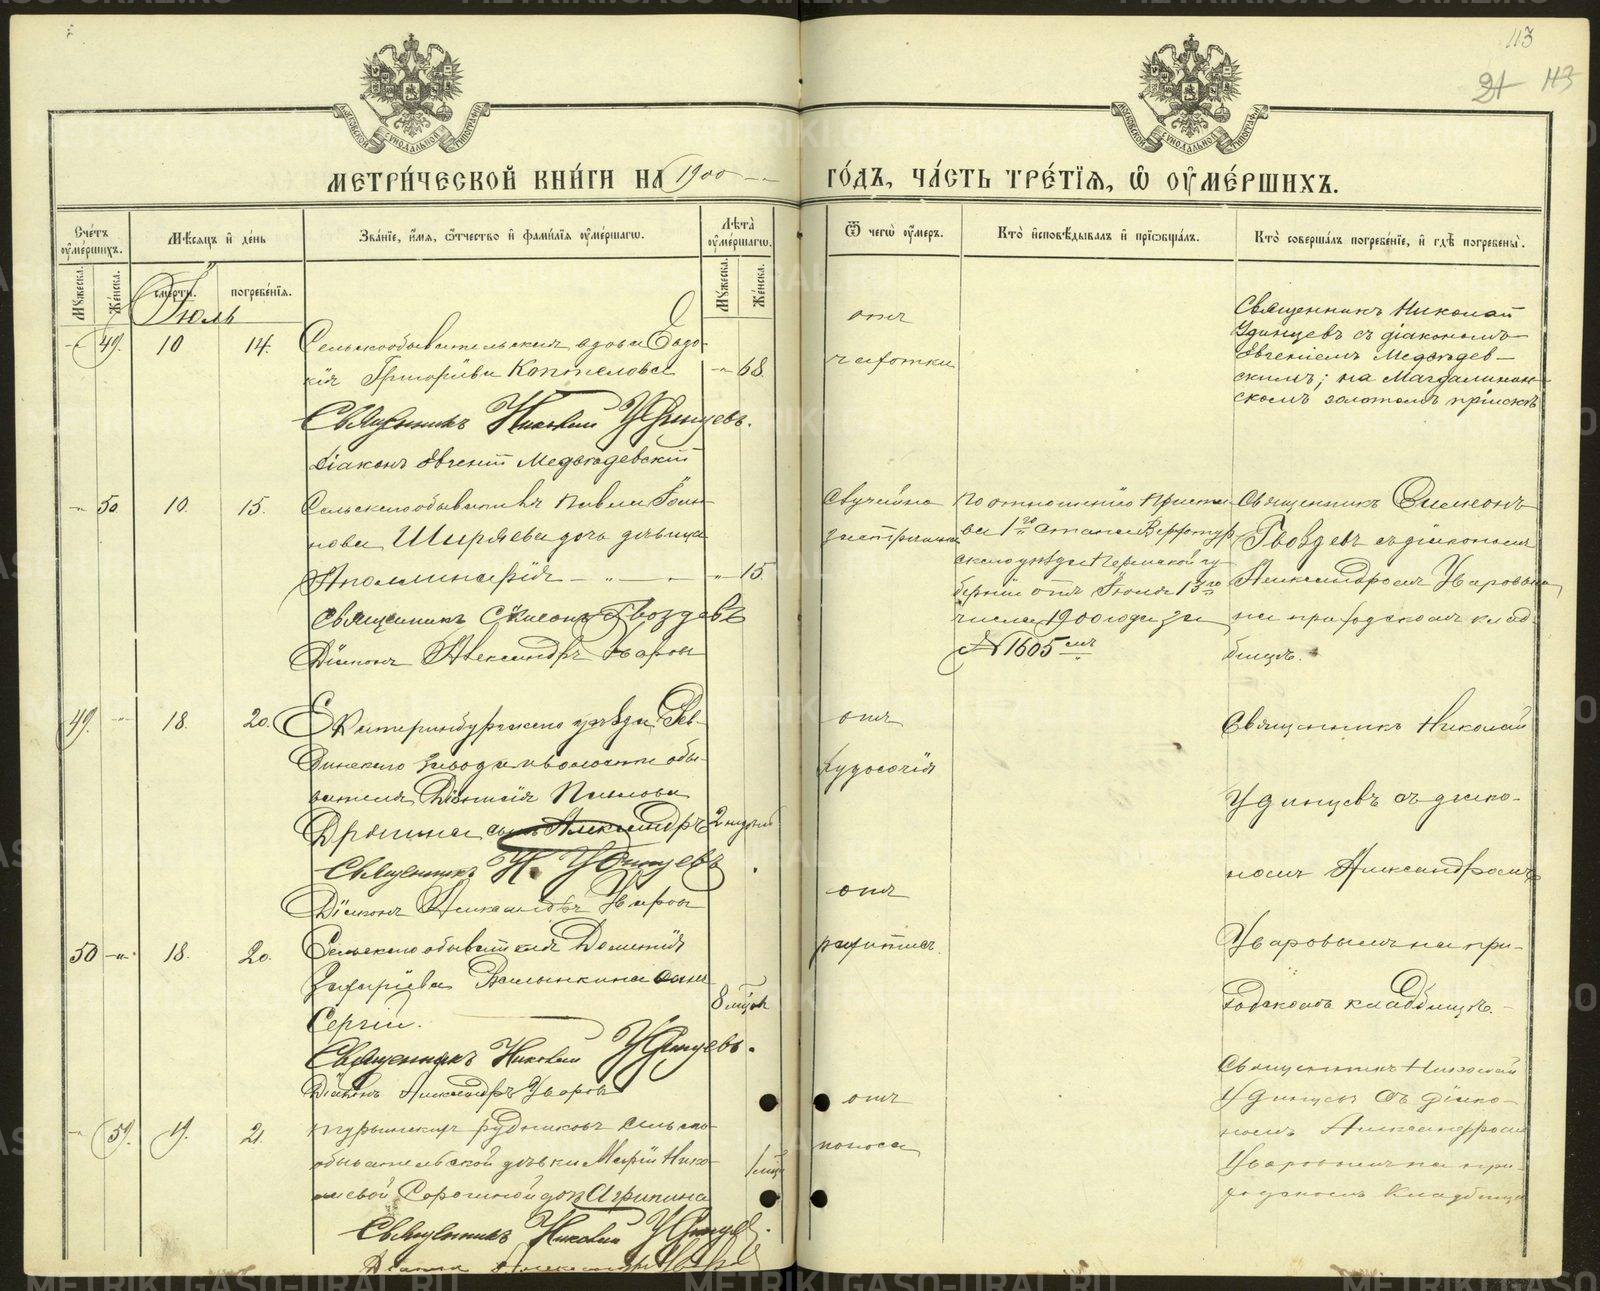 113
21 113
МЕТРИ́ЧЕСКОЙ КНИ́ГИ НА 1900
ГО́ДЪ, ЧА́СТЬ ТРЕ́ТІЯ, Ѡ҆ ОУ҆МЕ́РШИХЪ.
Сче́тъ оу҆ме́ршихъ.
Мѣ́сяцъ и҆ де́нь
Зва́нїе, и҆́мя, ѻ҆́тчество и҆ фами́лїя оу҆ме́ршагѡ.
Лѣ́та̀ оу҆ме́ршагѡ.
Ѿ чегѡ̀ оу҆́меръ.
Кто̀ и҆сповѣ́дывалъ и҆ прїѡбща́лъ.
Кто̀ соверша́лъ погребе́нїе, и҆ гдѣ̀ погребены̀.
Мꙋ́жеска. Же́нска. сме́рти. погребе́нїя. Мꙋ́жеска. Же́нска.
Іюль
49. 10 14. Сельскообывательская вдова Евдо-
кія Григоріева Коптелова 68.
Священникъ Николай Удинцевъ.
Діаконъ Евгеній Медвѣдевскій
отъ
чахотки
Священникъ Николай
Удинцевъ съ діакономъ
Евгеніемъ Медвѣдев-
скимъ; на Магдалинин-
скомъ золотомъ пріискѣ
50 10. 15. Сельскаго обывателя Павла Іоан-
нова Ширяева дочь дѣвица
Аполлинарія 15.
Священникъ Симеонъ Гвоздевъ
Діаконъ Александръ Уваровъ
Случайно
застрѣлена
По отношенію Приста-
ва 1го стана Верхотур
скаго уѣзда Пермской гу-
берніи отъ Іюля 13го
числа 1900 года за
№ 1605мъ
Священникъ Симеонъ
Гвоздевъ съ діакономъ
Александромъ Уваровымъ
на приходскомъ клад-
бищѣ.
49. 18. 20. Екатеринбургскаго уѣзда Рев-
динскаго завода и волости обы-
вателя Діонисія Павлова
Дрягина сынъ Александръ 2 недѣли
Священникъ Н. Удинцевъ
Діаконъ Александръ Уваровъ
отъ
худосочія
Священникъ Николай
Удинцевъ съ діако-
номъ Александромъ
Уваровымъ на при-
ходскомъ кладбищѣ.
50 18. 20. Сельскаго обывателя Дометія
Захаріева Балынкина сынъ
Сергій. 8 мѣсяц.
Священникъ Николай Удинцевъ.
Діаконъ Александръ Уваровъ
отъ
рахитиса.
51. 19. 21. Турьинскихъ рудниковъ сельско-
обывательской дѣвки Маріи Нико-
лаевой Сорогиной дочь Агрипина 1 мѣс
Священникъ Николай Удинцевъ.
Діаконъ Александръ Уваровъ
отъ
поноса
Священникъ Николай
Удинцевъ съ діако-
номъ Александромъ
Уваровымъ на при-
ходскомъ кладбищѣ
METRIKI.GASO-URAL.RU